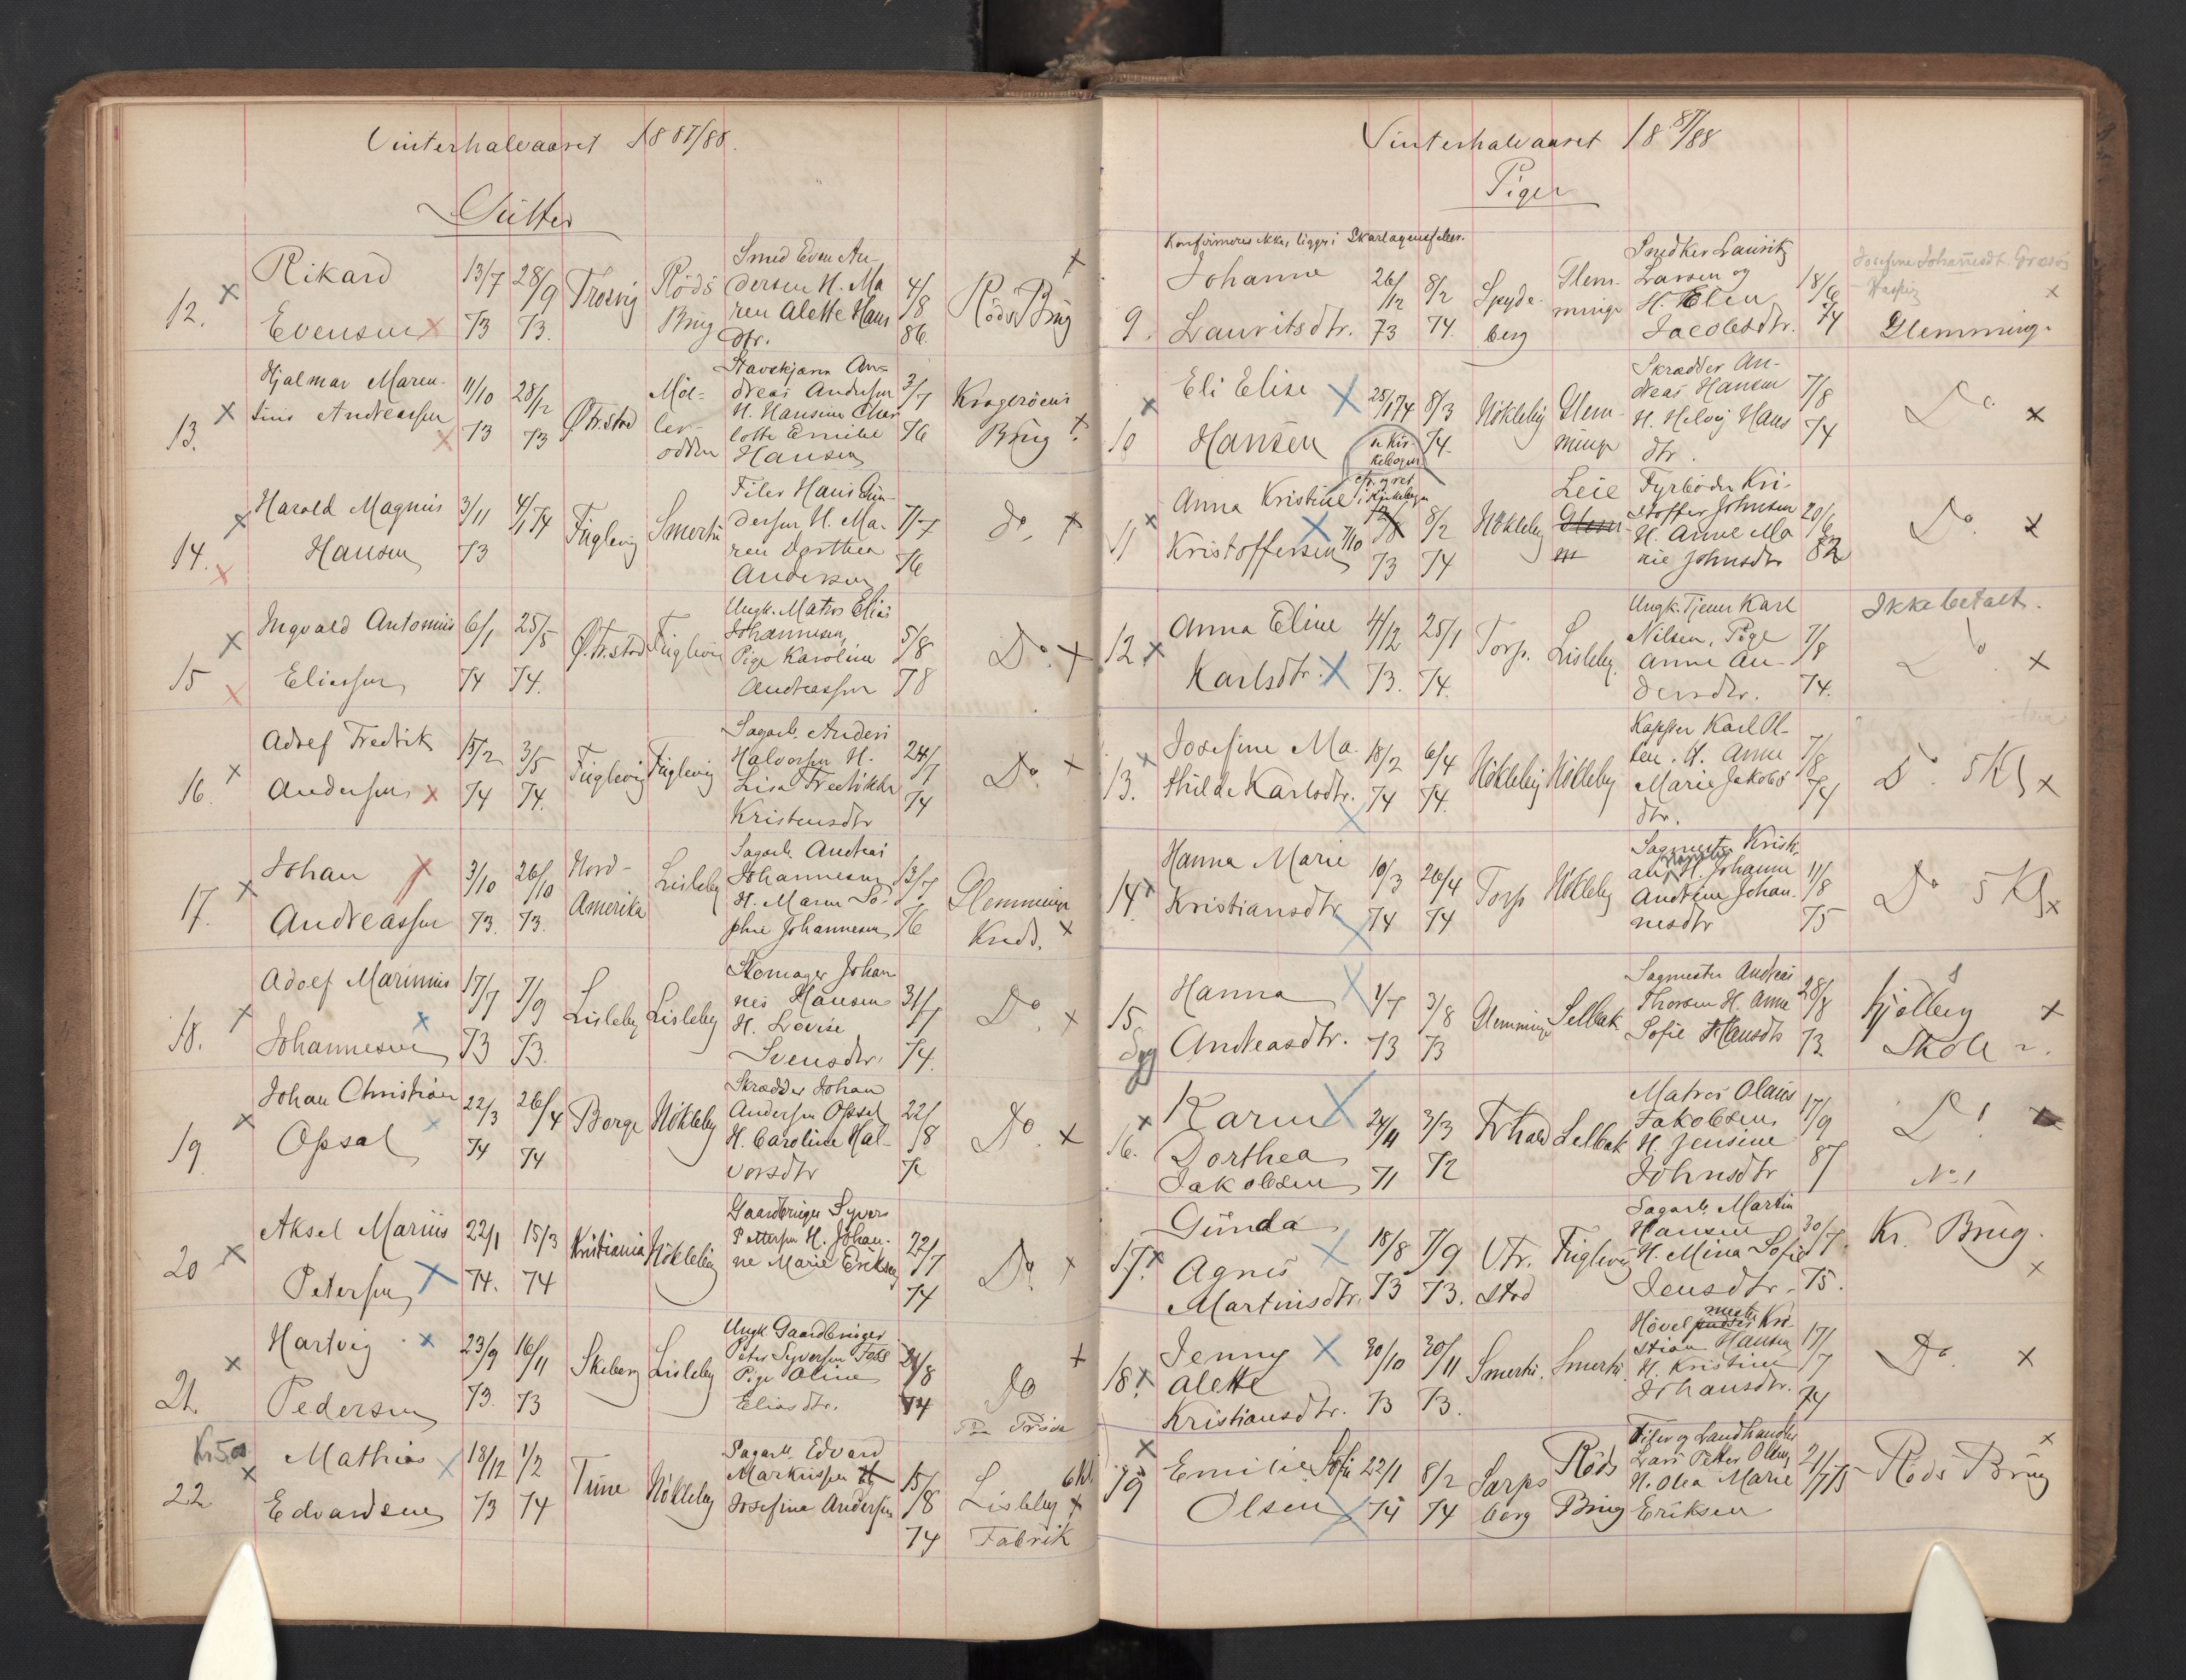 Vinterhalvaaret 1887/88.
Gutter
12. Rikard Evensen 13/7 73 28/9 73. Trosvig Röds Brug Smed Even Andersen H. Maren Alette Hansdtr. 4/8 86. Röds Brug
13. Hjalmar Marentius Andreassen 11/10 73 28/12 73 Ø.Fr.stad Möllerodden Stavskjærer Andreas Andersen H. Hansine Charlotte Emilie Hansen 3/7 76 Kragerøens Brug
14. Harald Magnus Hansen 3/11 73 4/1 74 Fuglevig Smertu Filer Hans Gundersen H. Maren Dorthea Andersen 7/7 76 do.
15 Ingvald Antonius Eliassen 6/1 74 25/5 74. Ø.Fr.stad Fuglevig Ungk. Matros Elias Johannesen, Pige Karoline Andreassen 5/8 78 Do.
16. Adolf Fredrik Andersen 15/2 74 3/5 74. Fuglevig Fuglevig Sagarb. Anders Halvorsen H. Lisa Fredrikke Kristensdtr 24/7 74 Do.
17. Johan Andreassen 3/10 73. 26/10 73. Nord-Amerika Lisleby Sagarb. Andreas Johannesen H. Maren Sophie Johannesen 13/7 76 Glemminge Kreds.
18. Adolf Marinius Johannesen 17/7 73 7/9 73. Lisleby Lisleby Skomager Johannes Hansen H. Lovise Svensdtr. 31/7 74. Do.
19 Johan Christian Opsal 22/3 74 26/4 74 Borge Nökleby Skrædder Johan Andersen Opsal H. Caroline Halvorsdtr 22/8 Do.
20 Aksel Marius Petersen 22/1 74. 15/3 74 Kristiania Nökleby Gaardbruger Syver Pettersen H. Johanne Marie Eriksen 22/7 74 Do.
21. Hartvig Pedersen 23/9 73. 16/11 73 Skeberg Lisleby Ungk. Gaardbruger Peter Syversen Foss Pige Oline Eliasdtr. 21/8 74 Do
Kr 5.00
22 Mathias Edvardsen 18/12 73 1/2 74 Tune Nökleby Sagarb. Edvard Markussen H Josefine Andersen 15/8 74 Lisleby Fabrik
Vinterhalvaaret 1887/88
Piger
Konfirmeres ikke, ligger i Skarlagensfeber.
9. Johanne Lauritsdtr. 26/12 73 8/2 74. Spydeberg Glemminge Snedker Lauritz Larsen og H. Elen Jacobsdtr. 18/6 74 Josefine Johannesdt. Glemminge
10 Eli Elise Hansen 28/1 74 8/3 74. Nökleby Glemminge Skrædder Andreas Hansen H. Helvig Hansdtr. 7/8 74 Do
11 Anna Kristine Kristoffersen 7/10 73 8/2 74 Nökleby Leie Fyrböder Kristoffer Johnsen H. Anne Marie Johnsdtr 20/6 82 Do.
12. Anna Eline Karlsdtr. 4/12 73. 25/1 74. Torp. Lisleby. Ungk. Tjener Karl Nilsen, Pige Anne Andersdtr. 7/8 74. Ikke betalt. Do.
13. Josefine Mathilde Karlsdtr. 18/2 74 6/4 74. Nökleby Nökleby Karl Olsen. H. Anne Marie Jakobsdtr. 7/8 74 Do. 5 Kr
14. Hanna Marie Kristiansdtr 10/3 74 26/4 74 Torp Nökleby Sagmester Kristian H. Johanne Andrine Johannesdtr 11/8 75 Do 5 Kr
15 Syg Hanna Andreasdtr. 1/7 73 3/8 73 Glemminge Selbak Sagmester Andreas Thorsen H. Anne Sofie Hansdtr 28/8 73 Kjölberg Skole
16. Karen Dorthea Jakobsen 24/11 71 3/3 72 Fr.hald Selbak Matros Olaus Jakobsen H. Jensine Johnsdtr 17/9 87 Do. No 1
17. Gunda Agnes Martinsdtr. 18/8 73 7/9 73. V.Fr.stad Fuglevig Sagarb. Martin Hansen H. Mina Sofie Jensdtr. 30/7 75. Kr. Brug.
18. Jenny Alette Kristiansdtr. 30/10 73 30/11 73. Smertu. Smertu. Hövelmester Kristian Hansen H. Kristine Johansdtr. 17/7 74 Do.
19 Emilie Sofie Olsen 22/1 74 8/2 74 Sarpsborg Röds Brug Filer og Landhandler Lars Petter Olsen H. Olea Marie Eriksen 21/7 75 Röds Brug